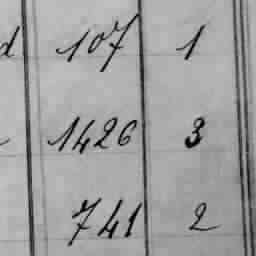 d 107 1
1426 3
741 2